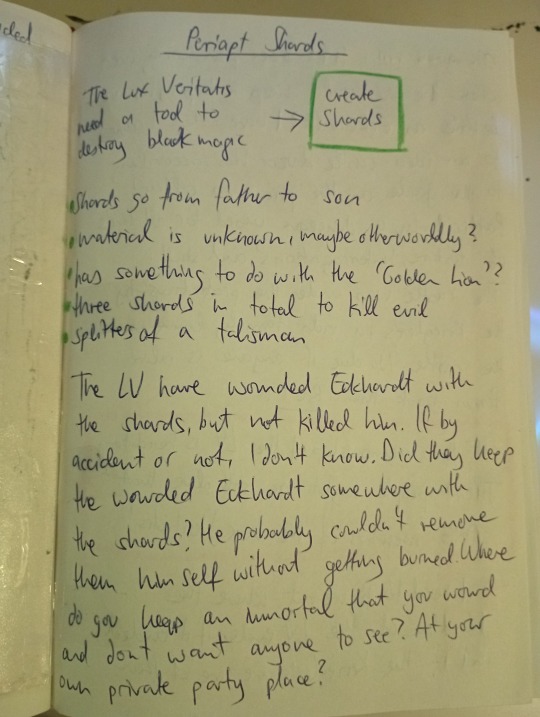 ded
Periapt Shards
The Lux Veritatis
need a tool to
destroy black magic
→
create
Shards
• Shards go from father to son
• material is unknown, maybe otherworldly?
• has something to do with the 'Golden Lion'?
• three shards in total to kill evil
• splitters of a talisman
The LV have wounded Eckhardt with
the shards, but not killed him. If by
accident or not, I don't know. Did they keep
the wounded Eckhardt somewhere with
the shards? He probably couldn't remove
them himself without getting burned. Where
do you keep an immortal that you wound
and don't want anyone to see? At your
own private party place?